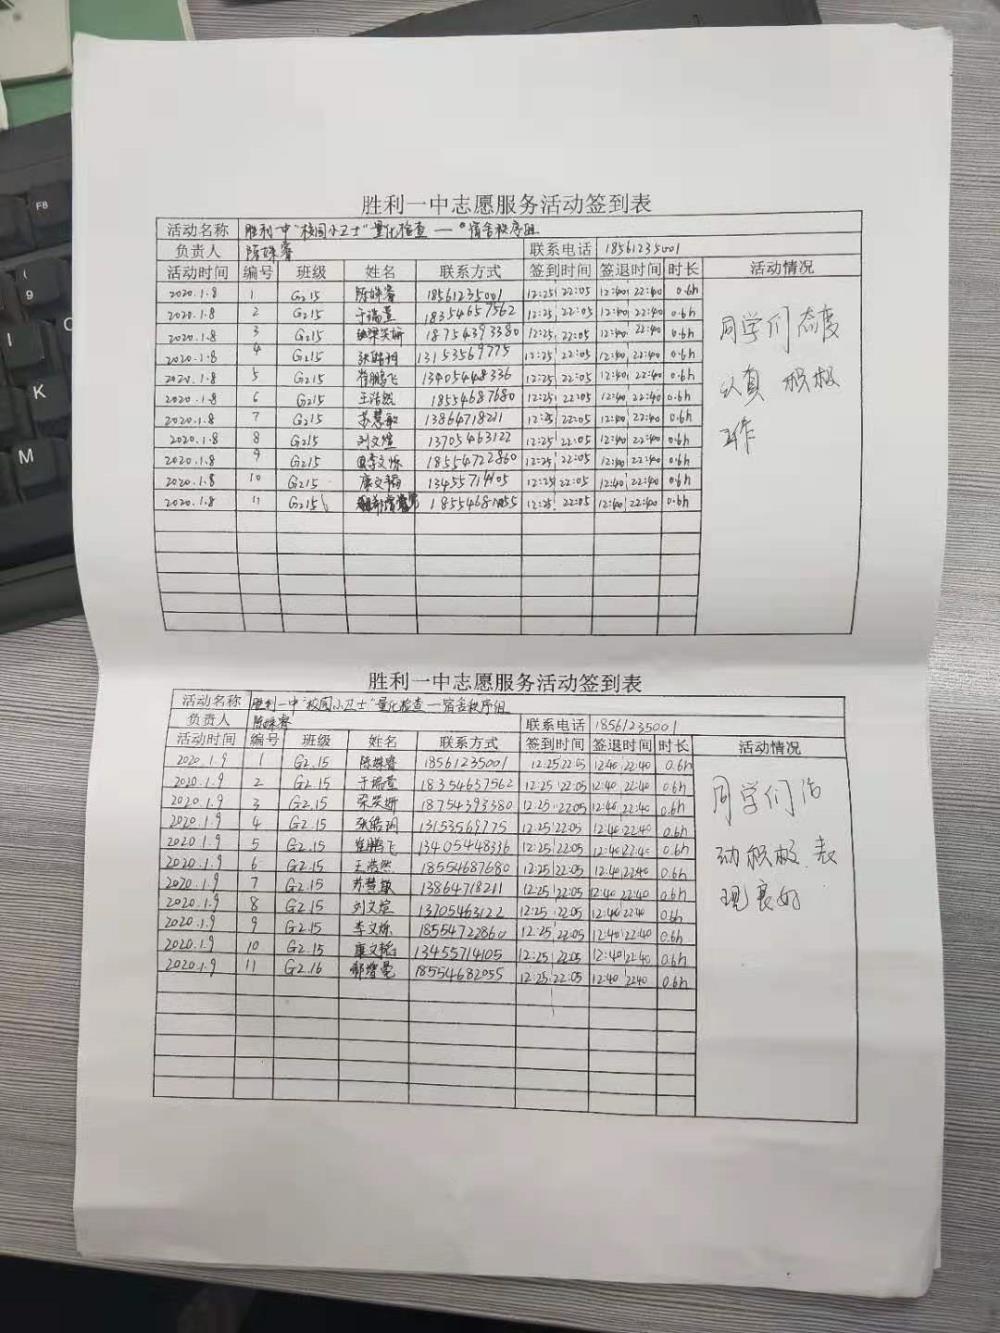 胜利一中志愿服务活动签到表
活动名称 胜利一中"校园小卫士"量化检查一宿舍秩序组
负责人 陈姝睿 联系电话 18561235001
活动时间 编号 班级 姓名 联系方式 签到时间 签退时间 时长 活动情况
2020.1.8 1 G215 陈姝睿 18561235001 12:25 22:05 12:40 22:40 0.6h
2020.1.8 2 G215 于瑞萱 18354657562 12:25 22:05 12:40 22:40 0.6h
2020.1.8 3 G215 梁笑妍 18754393380 12:25 22:05 12:40 22:40 0.6h
2020.1.8 4 G215 张皓玥 13153569775 12:25 22:05 12:40 22:40 0.6h
2020.1.8 5 G215 崔鹏飞 13405448336 12:25 22:05 12:40 22:40 0.6h
2020.1.8 6 G215 王浩然 18554687680 12:25 22:05 12:40 22:40 0.6h
2020.1.8 7 G215 苏慧敏 13864718211 12:25 22:05 12:40 22:40 0.6h
2020.1.8 8 G215 刘文煊 13705463122 12:25 22:05 12:40 22:40 0.6h
2020.1.8 9 G215 李文烁 18554722860 12:25 22:05 12:40 22:40 0.6h
2020.1.8 10 G215 康文韬 13455714105 12:25 22:05 12:40 22:40 0.6h
2020.1.8 11 G215 12:25 22:05 12:40 22:40 0.6h
同学们态度
认真 积极
工作
胜利一中志愿服务活动签到表
活动名称 胜利一中"校园小卫士"量化检查一宿舍秩序组
负责人 陈姝睿 联系电话 18561235001
活动时间 编号 班级 姓名 联系方式 签到时间 签退时间 时长 活动情况
2020.1.9 1 G2.15 陈姝睿 18561235001 12:25 22:05 12:40 22:40 0.6h
2020.1.9 2 G2.15 于瑞萱 18354657562 12:25 22:05 12:40 22:40 0.6h
2020.1.9 3 G2.15 梁笑妍 18754393380 12:25 22:05 12:40 22:40 0.6h
2020.1.9 4 G2.15 张皓玥 13153569775 12:25 22:05 12:40 22:40 0.6h
2020.1.9 5 G2.15 崔鹏飞 13405448336 12:25 22:05 12:40 22:40 0.6h
2020.1.9 6 G2.15 王浩然 18554687680 12:25 22:05 12:40 22:40 0.6h
2020.1.9 7 G2.15 苏慧敏 13864718211 12:25 22:05 12:40 22:40 0.6h
2020.1.9 8 G2.15 刘文煊 13705463122 12:25 22:05 12:40 22:40 0.6h
2020.1.9 9 G2.15 李文烁 18554722860 12:25 22:05 12:40 22:40 0.6h
2020.1.9 10 G2.15 康文韬 13455714105 12:25 22:05 12:40 22:40 0.6h
2020.1.9 11 G2.16 18554682055 12:25 22:05 12:40 2240 0.6h
同学们活
动积极 表
现良好
F8
9
I
K
M